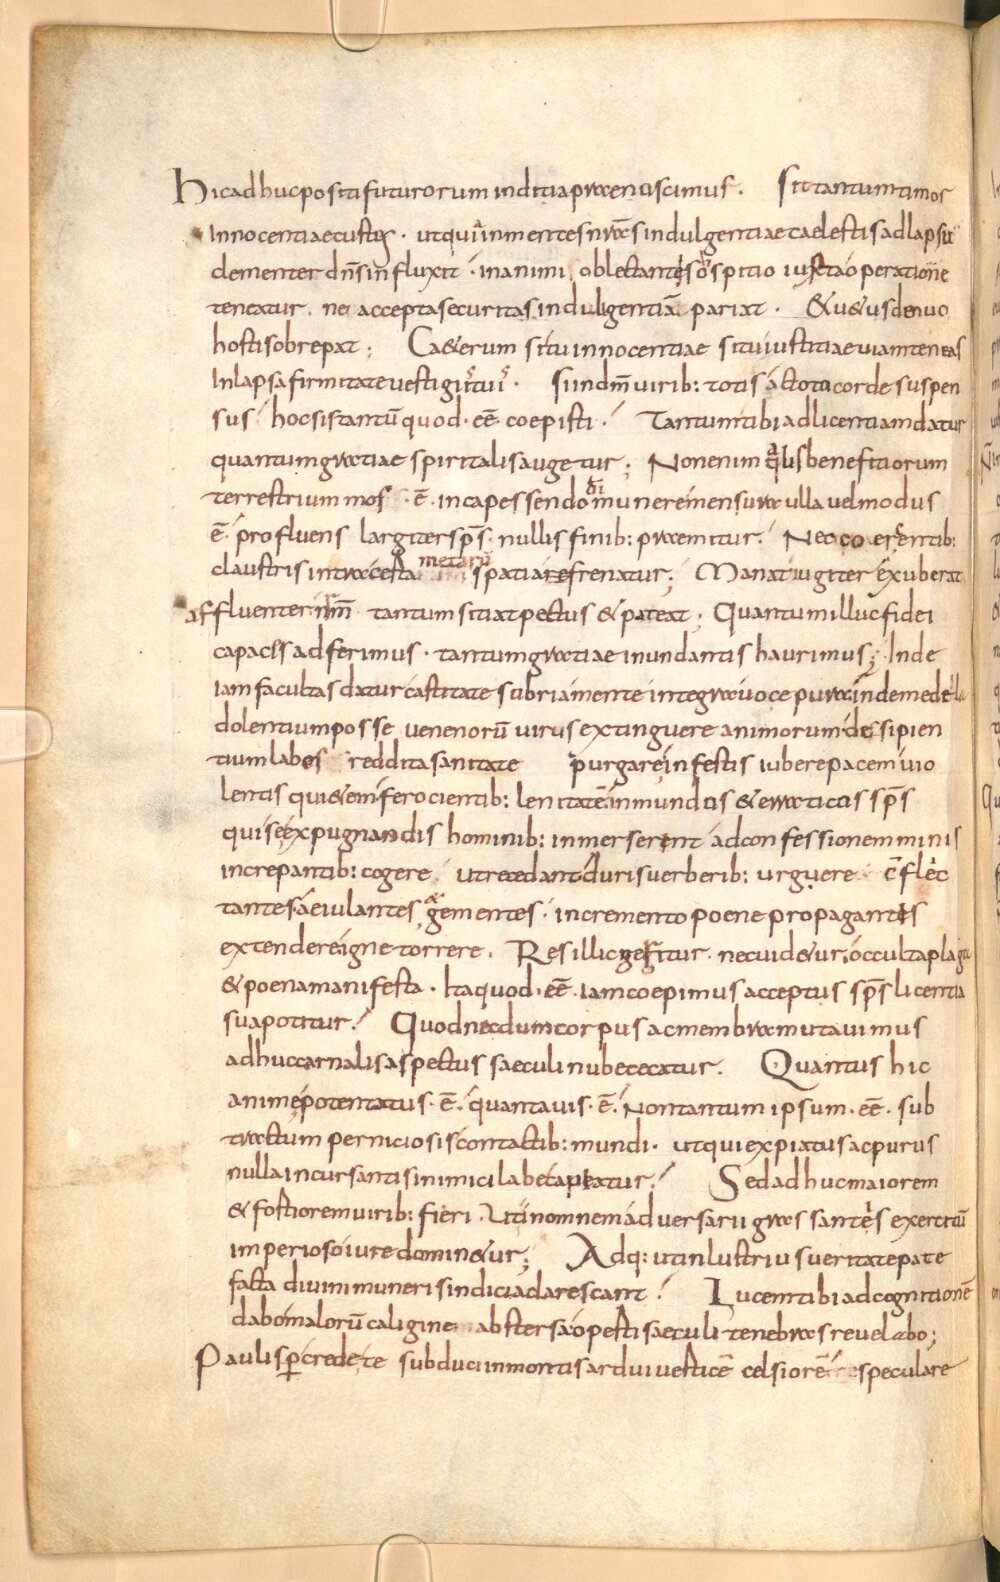 Hic adhuc positi futurorum inditia praenoscimus. Sit tantum timor
Innocentiae custos. ut qui in mentes nr̄as indulgentiae caelestis adlapsu
clementer dn̄s influxit. in animi oblectantis hospitio iusta operatione
teneatur. ne accepta securitas indulgentiā pariat. & uetus denuo
hostis obrepat; Ceterum si tu innocentiae si tu iustitiae uiam teneas
Inlapsa firmitate uestigii tui. si in dm̄ uirib: totis ac toto corde suspen
sus hoc sis tantū quod. eē. coepisti. Tantum tibi ad licentiam datur
quantum gratiae spiritalis augetur; Non enim qualis beneficiorum
terrestrium mos. ē. in capessendo munere mensura ulla uel modus
ē. profluens largiter sp̄s. nullis finib: praemitur. Nec coercentib:
claustris intra certa metarū spatia refrenatur; Manat iugiter exuberat
affluenter nrm̄ tantum sitiat pectus & pateat; Quantum illuc fidei
capacis adferimus. tantum gratiae inundantis haurimus; Inde
iam facultas datur castitate sobria mente integra uoce pura in de medela
dolentium posse uenenorū uirus extinguere animorum desipien
tium labes reddita sanitate purgare infestis iubere pacem uio
lentis quietem ferocientib: lenitatē inmundis & erraticis sp̄s
qui se expugnandis hominib: inmerserent ad confessionem minis
increpantib: cogere. ut recedant duris uerberib: urguere cōflec
tantes aeiulantes gementes. incremento poene propagantis
extendere igne torrere. Res illic geritur. nec uidetur. occulta plaga
& poena manifesta. Ita quod. eē. iam coepimus acceptus sp̄s licentia
sua potitur. Quod necdum corpus ac membra mutauimus
adhuc carnalis aspectus saeculi nube tecatur. Quantus hic
anime potentatus. ē. quanta uis. ē. Non tantum ipsum. eē. sub
tractum perniciosis contactib: mundi. ut qui expiatus ac purus
nulla incursantis inimici labe capeatur. Sed adhuc maiorem
& fostiorem uirib: fieri. Ut in omnem aduersarii grassantes exercitū
imperioso iure dominetur; Adq: ut inlustriu s ueritate pate
facta diuini muneris indicia clarescant. Lucem tibi ad cognitionē
dabo malorū caligine abstersa opesti saeculi tenebras reuelabo;
Paulisp̄ crede te subduci in montis ardui uesticē celsiorē speculare